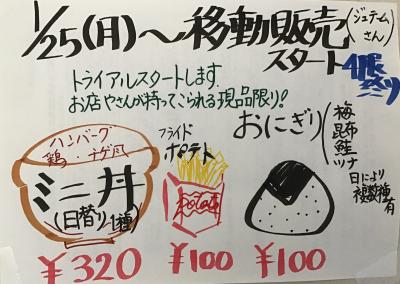 1/25(日)〜移動販売(ジュテームさん)
スタート
トライアルスタートします.
お店やさんが持ってこられる現品限り!
ハンバーグ
鶏・ナゲ風
ミニ丼
(日替り1種)
¥320
フライド
ポテト
Potato
¥100
おにぎり
梅
昆布
鮭
ツナ
日により
複数種
有
¥100